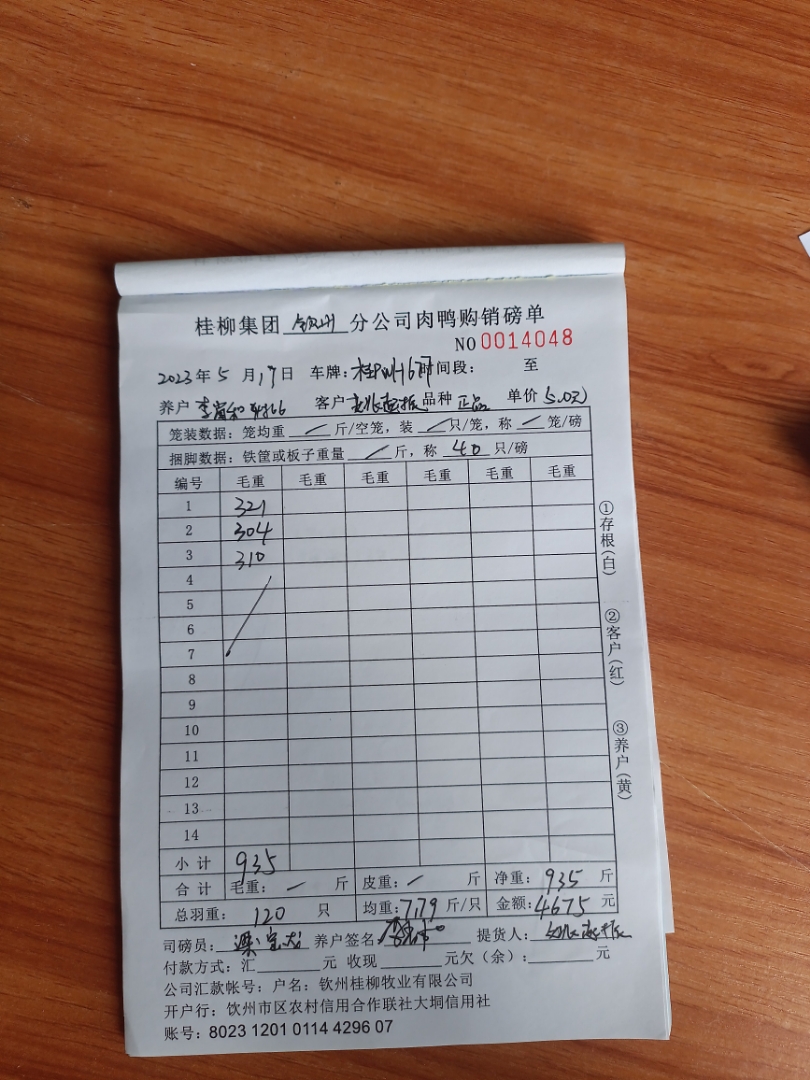 桂柳集团 钦州 分公司肉鸭购销磅单
NO 0014048
2023年 5 月 17日 车牌: 时间段: 至
养户 李富和 客户 品种 正品 单价 5.0元
笼装数据: 笼均重 / 斤/空笼, 装 / 只/笼, 称 / 笼/磅
捆脚数据: 铁筐或板子重量 / 斤, 称 40 只/磅
编号 毛重 毛重 毛重 毛重 毛重 毛重
1 321
2 304
3 310
4
5
6
7
8
9
10
11
12
13
14
小计 935
合计 毛重: / 斤 皮重: / 斤 净重: 935 斤
总羽重: 120 只 均重: 7.79 斤/只 金额: 4675 元
司磅员: 养户签名 提货人:
付款方式: 汇 元 收现 元欠(余): 元
公司汇款帐号: 户名: 钦州桂柳牧业有限公司
开户行: 饮州市区农村信用合作联社大垌信用社
账号: 8023 1201 0114 4296 07
①存根(白)
②客户(红)
③养户(黄)